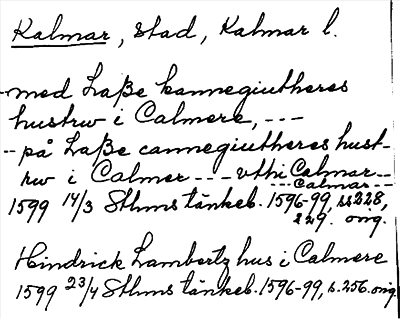 Kalmar, stad, Kalmar l.
- med Laße kannegiutheres
hustrw i Calmere, ---
-- på Laße cannegiutheres hust-
rw i Calmer --- vthi Calmar --
--- Calmar --
1599 14/3 Sthms tänkeb. 1596-99, ss 228,
229. orig.
Hindrick Lambertz hus i Calmere
1599 23/4 Sthms tänkeb. 1596-99, s. 256. orig.